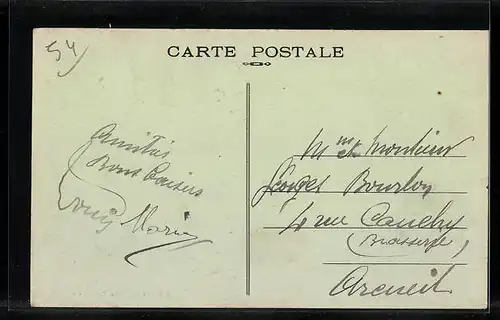 54
CARTE POSTALE
Amitiés
Bons Baisers
Marie
Mme et Monsieur
Georges Bourlon
4 rue Cauchy
(Brasserie)
Arcueil